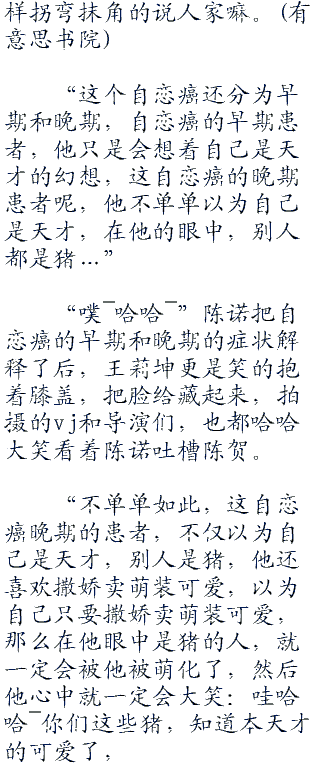 样拐弯抹角的说人家嘛。(有
意思书院)
“这个自恋癌还分为早
期和晚期，自恋癌的早期患
者，他只是会想着自己是天
才的幻想，这自恋癌的晚期
患者呢，他不单单以为自己
是天才，在他的眼中，别人
都是猪…”
“噗¯哈哈¯”陈诺把自
恋癌的早期和晚期的症状解
释了后，王莉坤更是笑的抱
着膝盖，把脸给藏起来，拍
摄的vj和导演们，也都哈哈
大笑看着陈诺吐槽陈贺。
“不单单如此，这自恋
癌晚期的患者，不仅以为自
己是天才，别人是猪，他还
喜欢撒娇卖萌装可爱，以为
自己只要撒娇卖萌装可爱，
那么在他眼中是猪的人，就
一定会被他被萌化了，然后
他心中就一定会大笑：哇哈
哈¯你们这些猪，知道本天才
的可爱了，